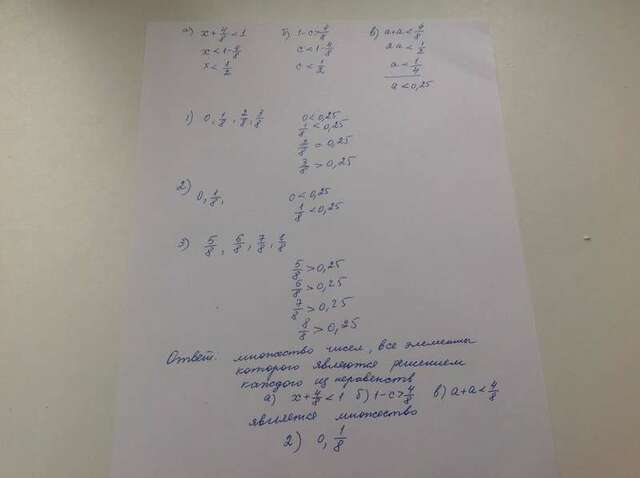 а) x + 4/8 < 1 б) 1 - c > 4/8 в) a + a < 4/8
x < 1 - 4/8 c < 1 - 4/8 2a < 1/2
x < 1/2 c < 1/2 a < 1/4
a < 0,25
1) 0, 1/8, 2/8, 3/8 0 < 0,25
1/8 < 0,25
2/8 = 0,25
3/8 > 0,25
2) 0, 1/8, 0 < 0,25
1/8 < 0,25
3) 5/8, 6/8, 7/8, 8/8
5/8 > 0,25
6/8 > 0,25
7/8 > 0,25
8/8 > 0,25
Ответ: множество чисел, все элементы
которого являются решением
каждого из неравенств
а) x + 4/8 < 1 б) 1 - c > 4/8 в) a + a < 4/8
является множество
2) 0, 1/8